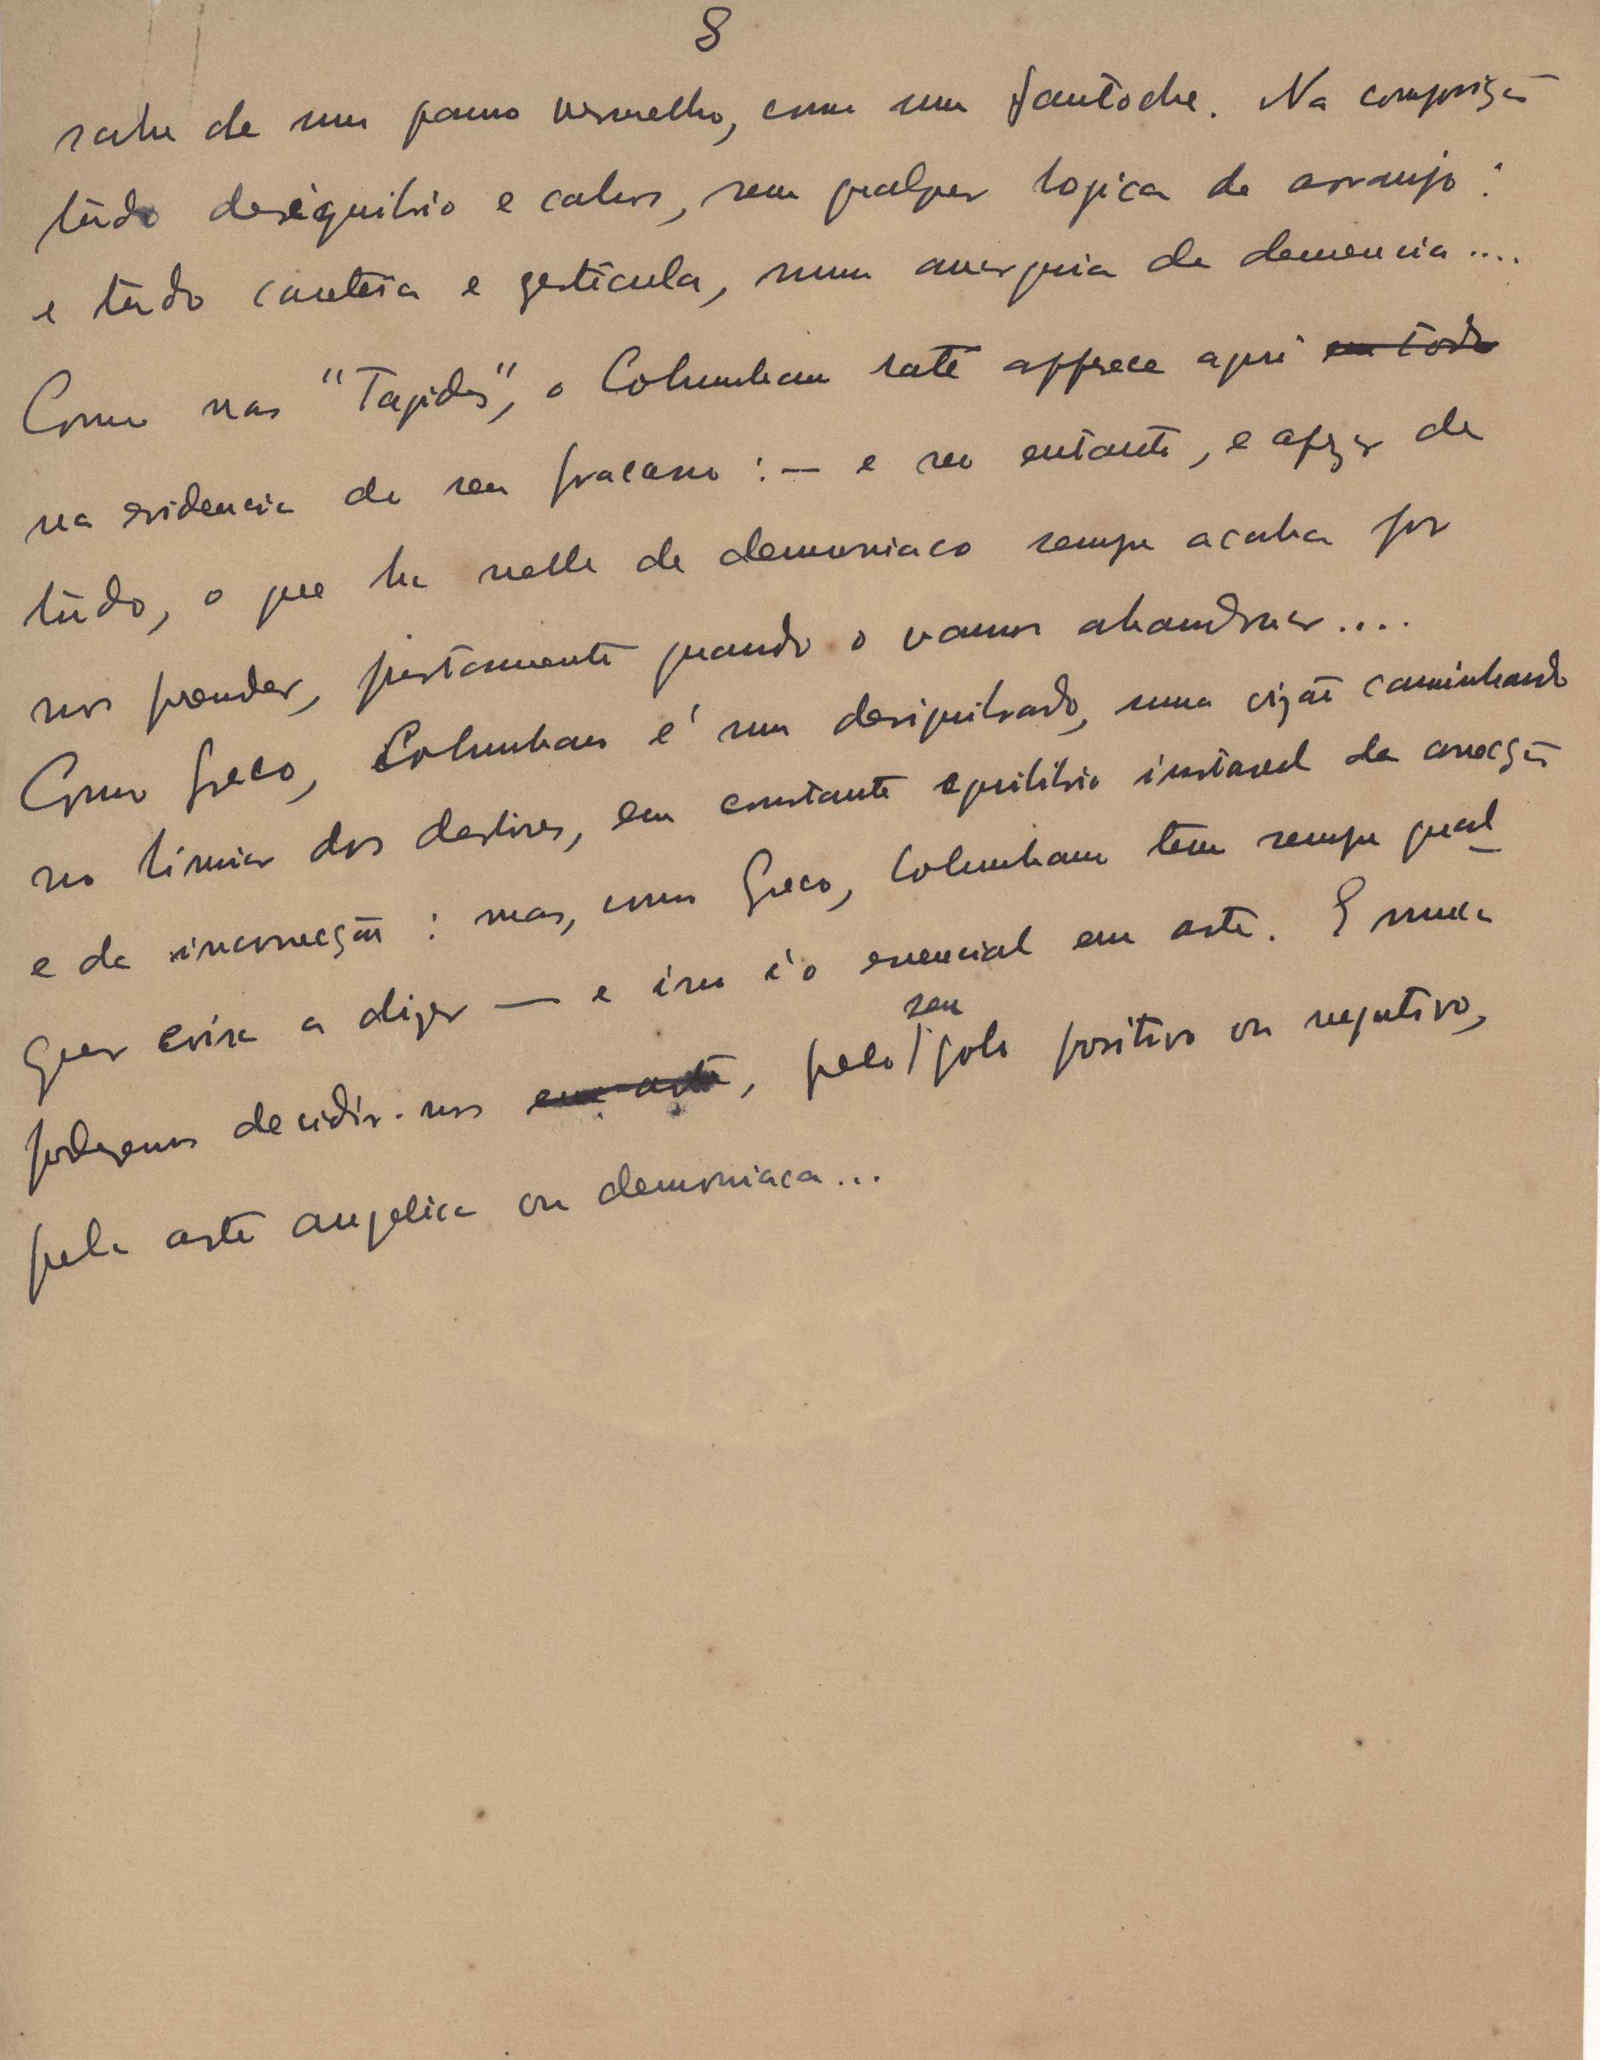 8
sahe de um panno vermelho, como um fantoche. Na composição
tudo desequilibrio e cahos, sem qualquer logica de arranjo:
e tudo e gesticula, numa anarquia de demencia....
Como nas "Tagides", o Columbano raté apparece aqui em todo
na evidencia do seu fracasso: — e no entanto, e apezar de
tudo, o que ha nelle de demoniaco sempre acaba por
nos prender, justamente quando o vamos abandonar....
Como Greco, Columbano é um desiquilibrado, uma caminhando
no limiar dos destinos, em constante equilibrio instavel da correcção
e da incorrecção: mas, como Greco, Columbano tem sempre qual
quer coisa a dizer — e isso é o essencial em arte. E nunca
podemos decidir-nos em arte, pelo seu polo positivo ou negativo,
pela arte angelica ou demoniaca...